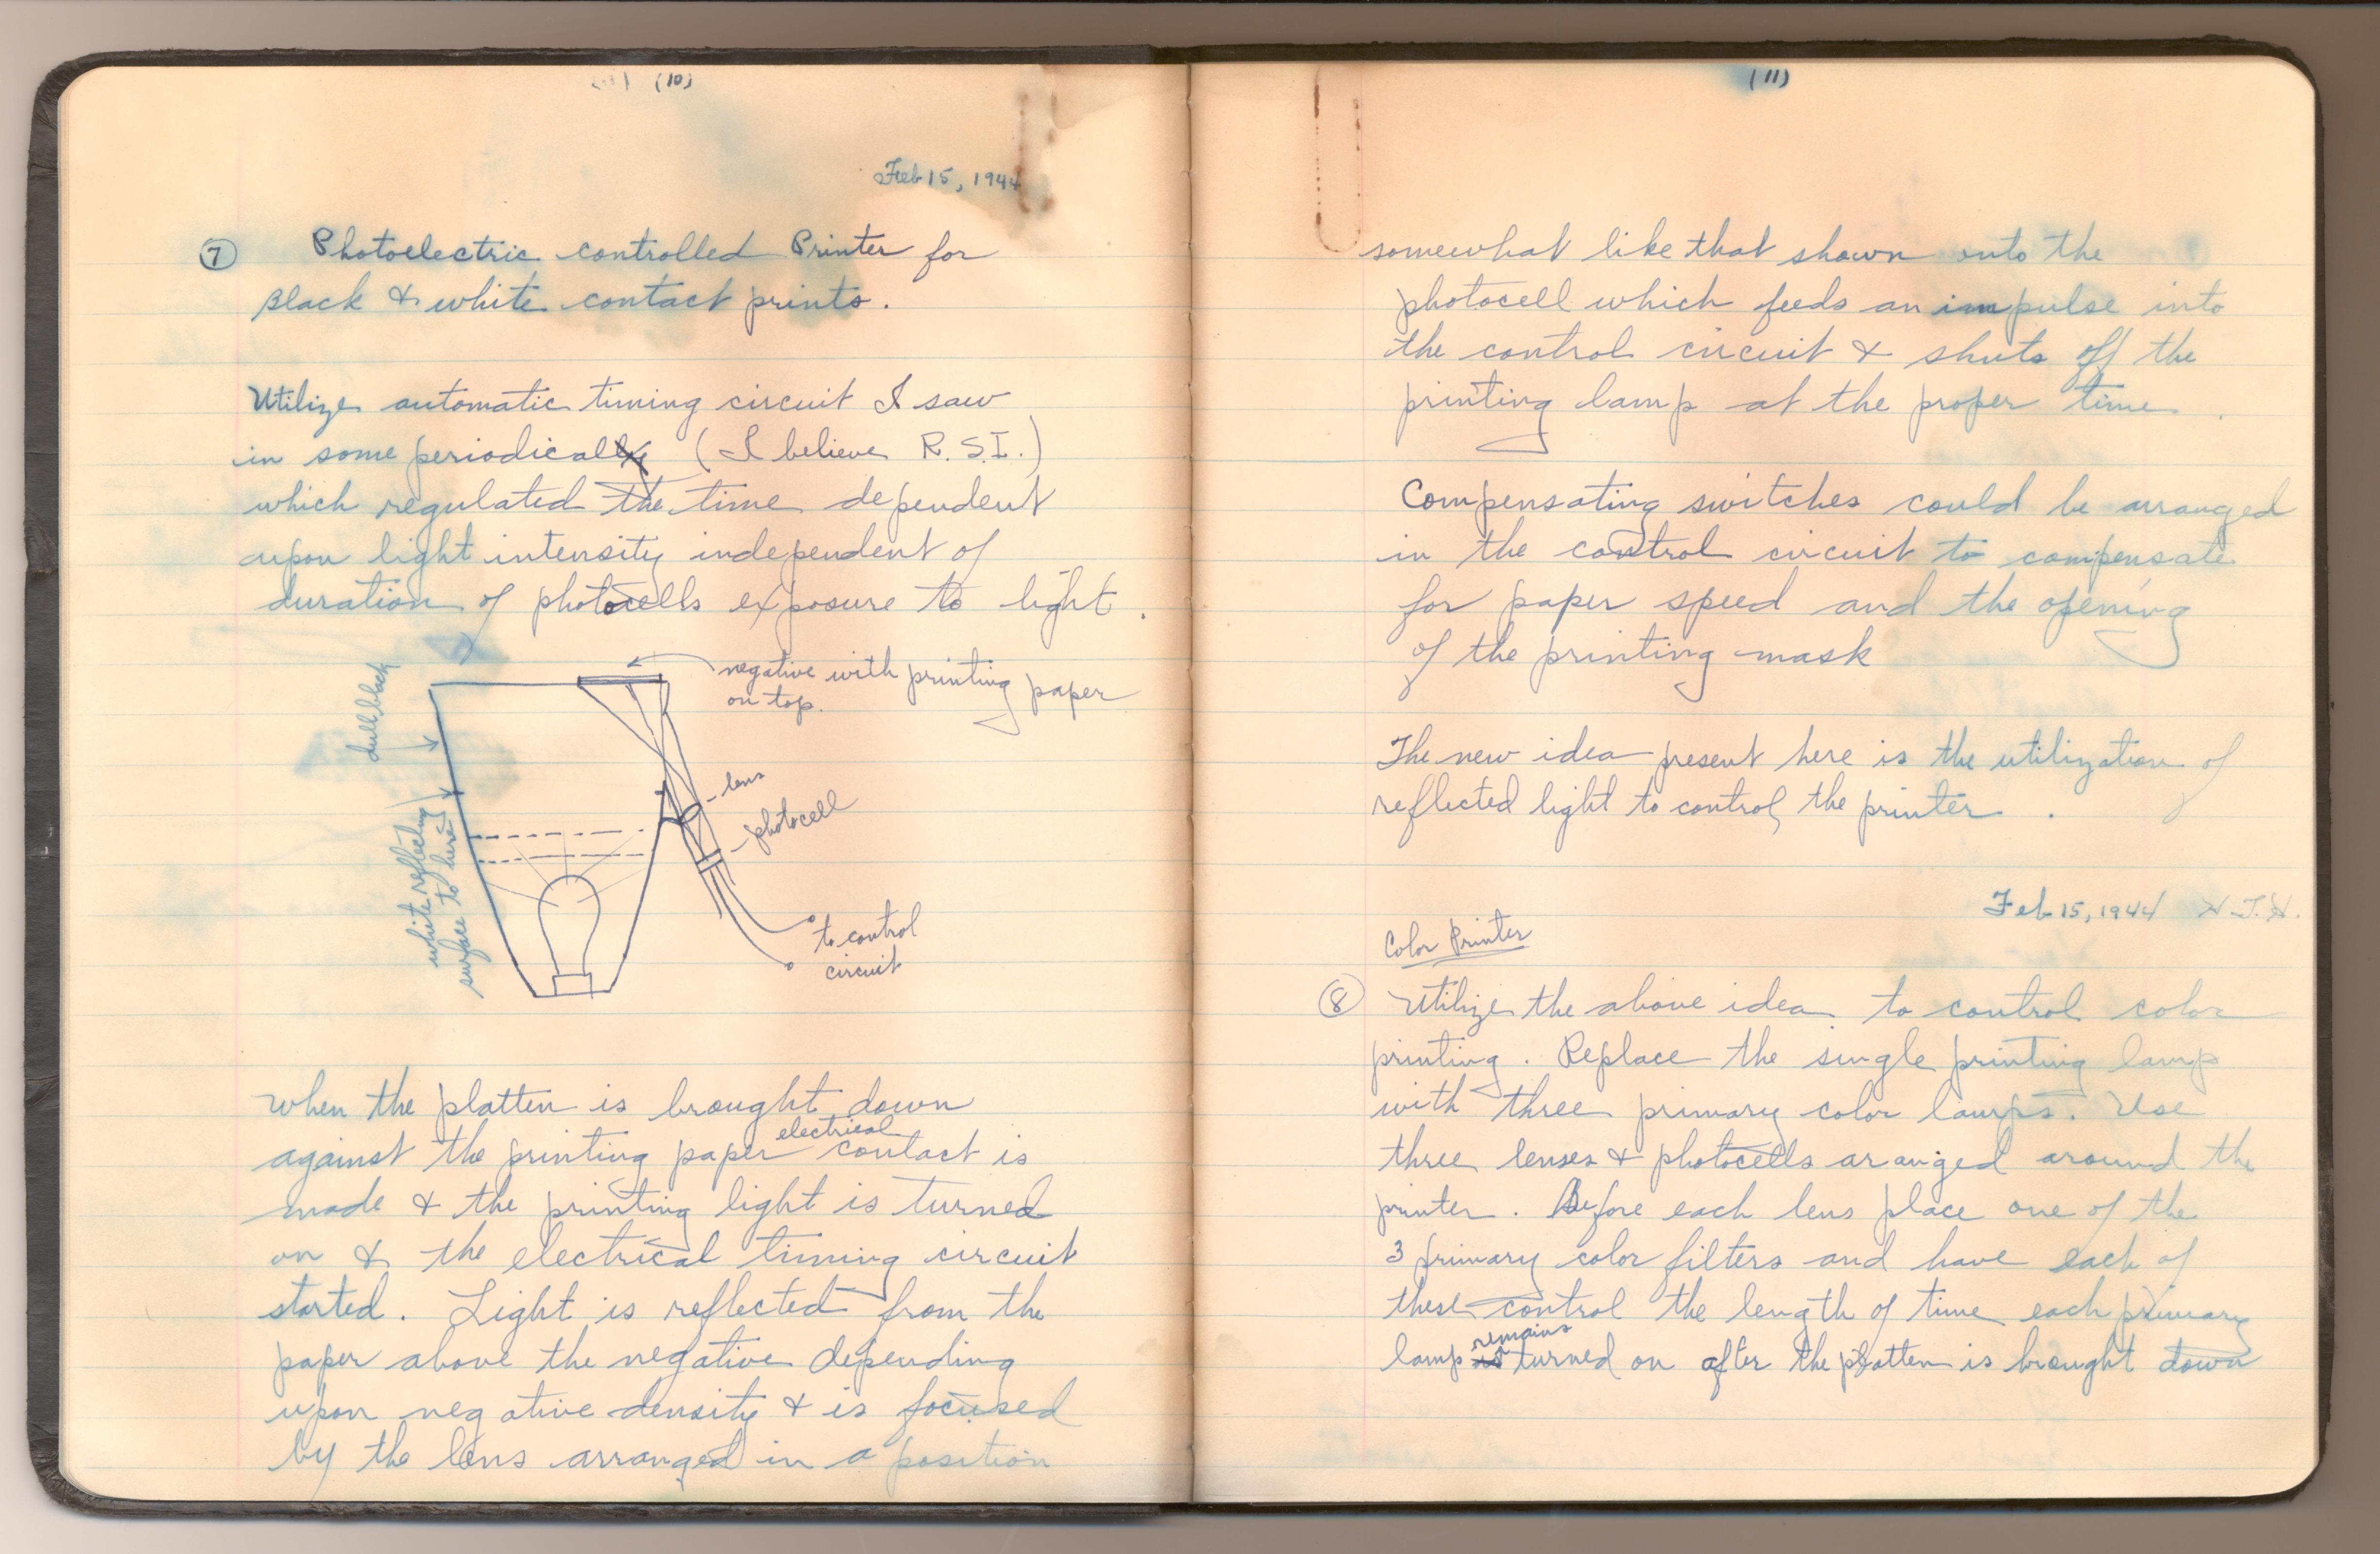 (10)
Feb 15, 1944
7 Photoelectric controlled Printer for
Black & white contact prints.
Utilize automatic timing circuit I saw
in some periodical (I believe R.S.I.)
which regulated the time dependent
upon light intensity independent of
duration of photocells exposure to light.
dull black
negative with printing paper
on top.
lens
photocell
white reflecting
surface to here
to control
circuit
When the platten is brought down
against the printing paper electrical contact is
made & the printing light is turned
on & the electrical timing circuit
started. Light is reflected from the
paper above the negative depending
upon negative density & is focused
by the lens arranged in a position
(11)
somewhat like that shown onto the
photocell which feeds an impulse into
the control circuit & shuts off the
printing lamp at the proper time.
Compensating switches could be arranged
in the control circuit to compensate
for paper speed and the opening
of the printing mask
The new idea present here is the utilization of
reflected light to control the printer.
Feb 15, 1944 H.J.H.
Color Printer
8 Utilize the above idea to control color
printing. Replace the single printing lamp
with three primary color lamps. Use
three lenses & photocells aranged around the
printer. Before each lens place one of the
3 primary color filters and have each of
these control the length of time each primary
lamp remains turned on after the platten is brought down